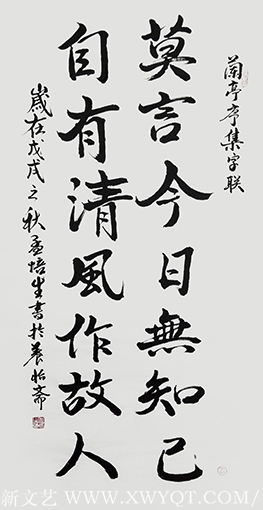 兰亭序集字联
莫言今日無知己
自有清風作故人
歲在戊戌之秋孟培生書於晨怡斋
新文艺 WWW.XWYQT.COM